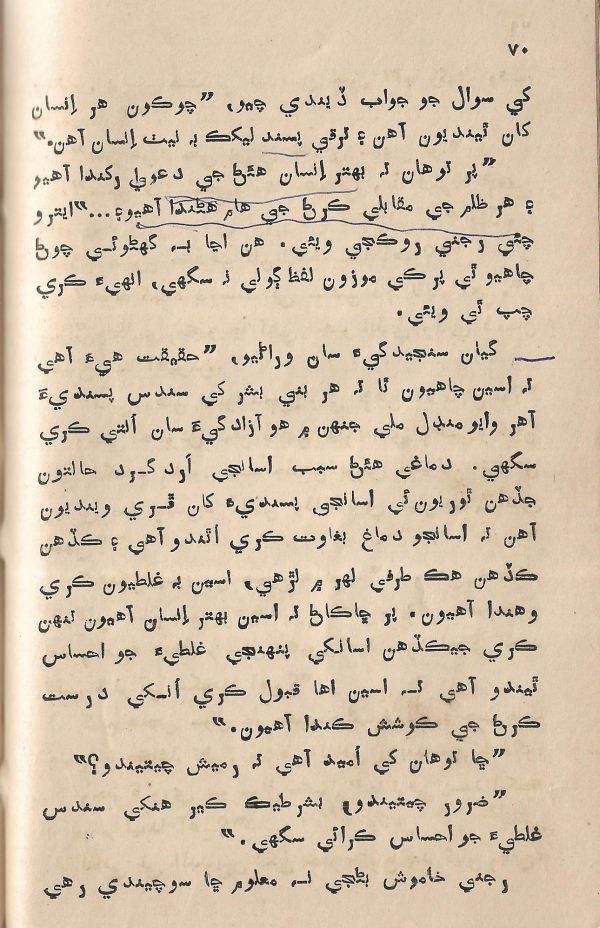 ٧٠
کي سوال جو جواب ڏيندي چيو، ”چوڪون هر اِنسان
کان ٿينديون آهن ۽ ترقي پسند ليکڪ بہ نيٺ اِنسان آهن.“
”پر توهان تہ بهتر اِنسان هئڻ جي دعويٰ رکندا آهيو
۽ هر ظلم جي مقابلي ڪرڻ جي هام هڻندا آهيو؛...“ ايترو
چئي رجني روڪجي ويئي. هن اڃا بہ گهڻوئي چوڻ
چاهيو ٿي پر ڪي موزون لفظ ڳولي نہ سگهي، انهيءَ ڪري
چپ ٿي ويئي.
گيان سنجيدگيءَ سان وراڻيو، ”حقيقت هيءَ آهي
تہ اسين چاهيون ٿا تہ هر بني بشر کي سندس پسنديءَ
آهر وايو منڊل ملي جنهن ۾ هو آزادگيءَ سان اُنتي ڪري
سگهي. دماغي هئڻ سبب اسانجي اُرد گرد حالتون
جڏهن ٿوريون ئي اسانجي پسنديءَ کان ڦري وينديون
آهن تہ اسانجو دماغ بغاوت ڪري اُٿندو آهي ۽ ڪڏهن
ڪڏهن هڪ طرفي لهر ۾ لڙهي، اسين بہ غلطيون ڪري
وهندا آهيون. پر ڇاڪاڻ تہ اسين بهتر اِنسان آهيون تنهن
ڪري جيڪڏهن اسانکي پنهنجي غلطيءَ جو احساس
ٿيندو آهي تہ اسين اها قبول ڪري اُنکي درست
ڪرڻ جي ڪوشش ڪندا آهيون.“
”ڇا توهان کي اُميد آهي تہ رميش چيتيندو؟“
”ضرور چيتيندو، بشرطيڪ ڪير هنکي سندس
غلطيءَ جو احساس ڪرائي سگهي.“
رجني خاموش بڻجي نہ معلوم ڇا سوچيندي رهي